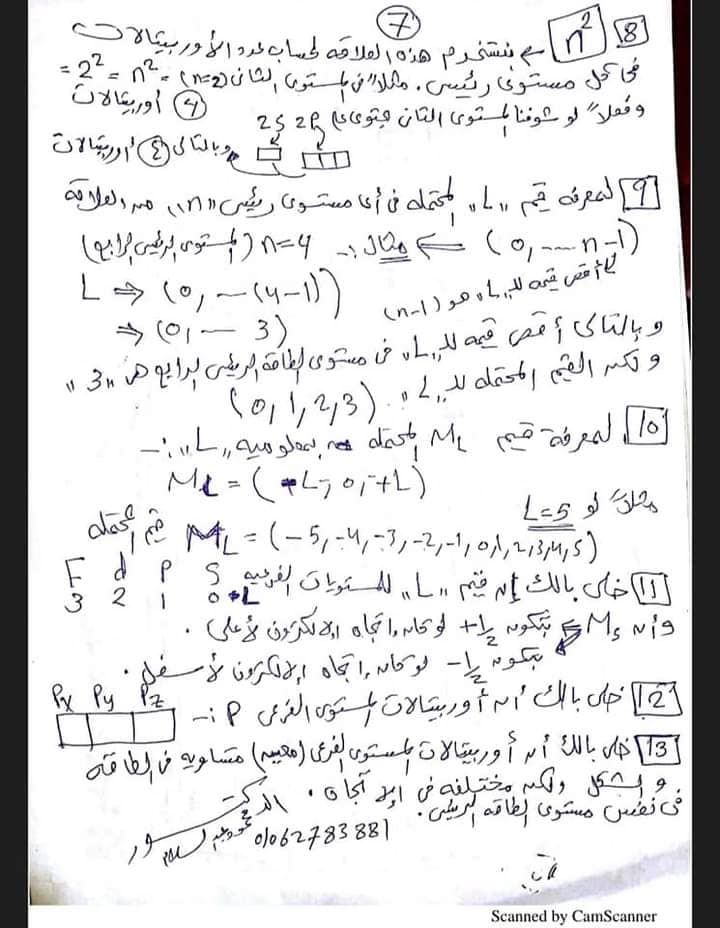 7
8 n² → نستخدم هذه العلاقة لحساب عدد الأوربيتالات
فى كل مستوى رئيسى. مثلاً فى المستوى الثانى (n=2) = n² = 2² =
4 أوربيتالات
وفعلاً لو شوفنا المستوى الثانى يحتوى على 2S 2P
وبالتالى 4 أوربيتالات
9 لمعرفة قيم "L" المحتمله فى أى مستوى رئيسى "n" من العلاقة
(0, --- n-1) ⇐ مثال :- n=4 (المستوى الرئيسى الرابع)
L ⇒ (0, — (4-1))
أقصى قيمه لـ "L" هو (n-1)
⇒ (0, — 3)
وبالتالى أقصى قيمه لـ "L" فى مستوى الطاقة الرئيسى الرابع هى "3"
ولكن القيم المحتمله لـ "L" : (0, 1, 2, 3)
10 لمعرفة قيم ML المحتمله بمعلومية "L" :-
ML = (-L, 0, +L)
مثلاً لو L=5
قيم محتمله ML = (-5, -4, -3, -2, -1, 0, 1, 2, 3, 4, 5)
11 خلى بالك إن قيم "L" للمستويات الفرعيه S P d F
L 0 1 2 3
وأن Ms بتكون +½ لو كان اتجاه الالكترون لأعلى.
بتكون -½ لو كان اتجاه الالكترون لأسفل.
12 خلى بالك أن أوربيتالات المستوى الفرعى P :-
Px Py Pz
13 خلى بالك أن أوربيتالات المستوى الفرعى (معين) متساويه فى الطاقه
و الشكل ولكن مختلفه فى الاتجاه.
فى نفس مستوى الطاقه الرئيسى.
01062783881
Scanned by CamScanner